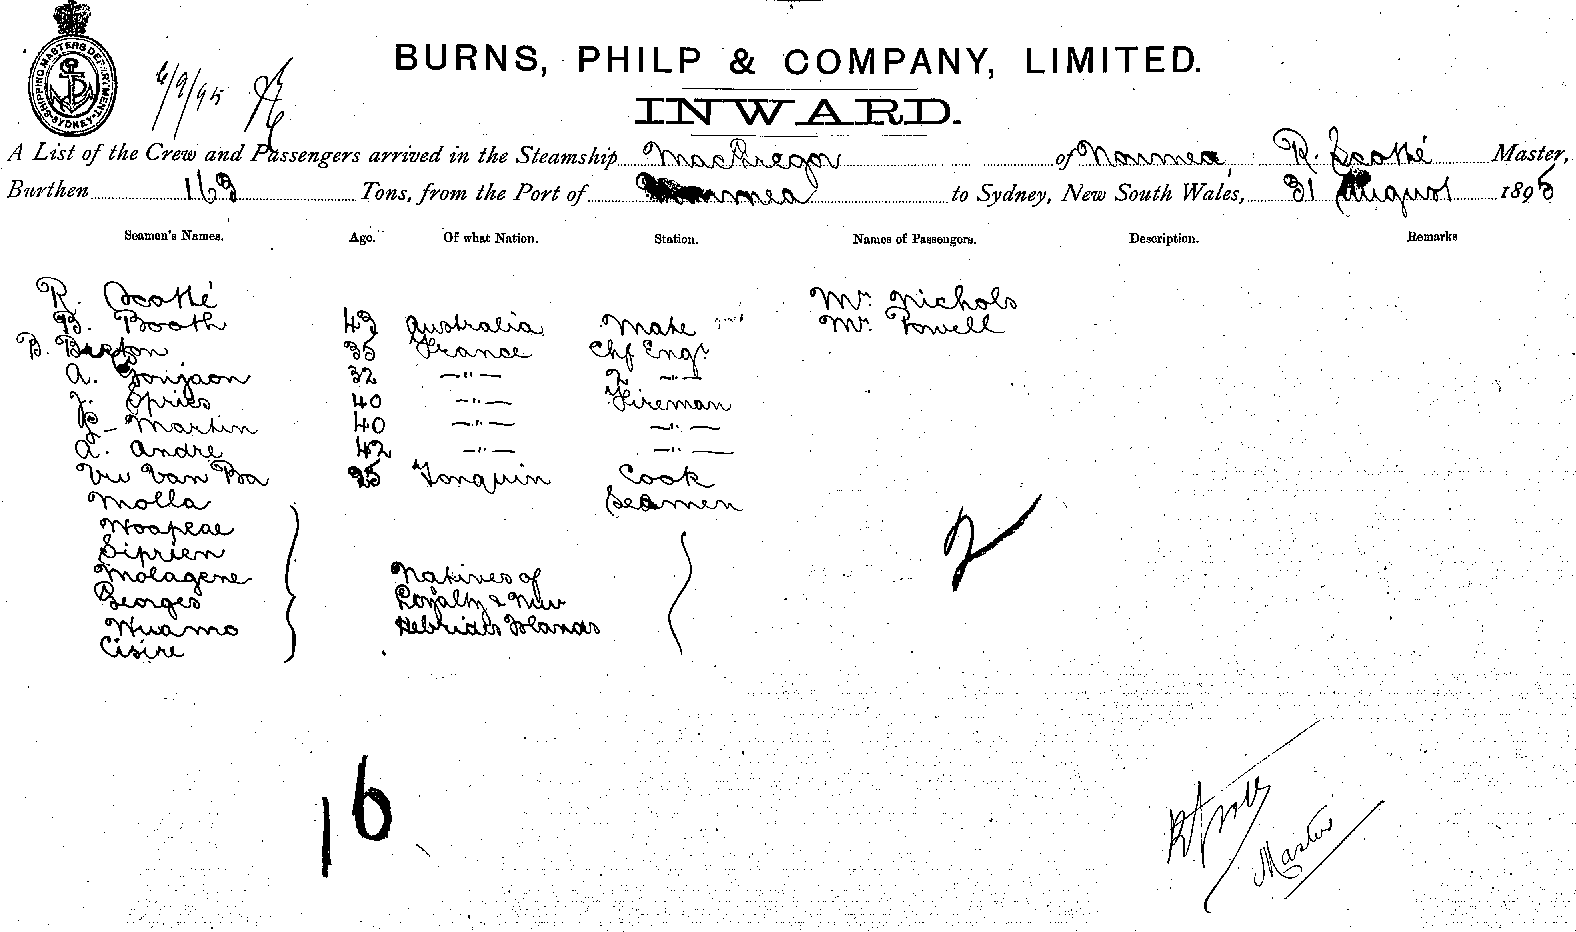 SHIPPING MASTERS DEPARTMENT. SYDNEY
6/9/95
BURNS, PHILP & COMPANY, LIMITED.
INWARD.
A List of the Crew and Passengers arrived in the Steamship MacGregor of Noumea, R. Scothé Master,
Burthen 163 Tons, from the Port of Noumea to Sydney, New South Wales, 31 August 1895
Seamen's Names. Age. Of what Nation. Station. Names of Passengers. Description. Remarks
R. Scothé Mr. Nichols
B. Booth 43 Australia Mate Mr. Powell
B. 35 France Chf Engr
A. 32 —"— 2 —"—
J. Spries 40 —"— Fireman
Martin 40 —"— —"—
A. Andre 42 —"— —"—
Vu Van Ba 25 Tonquin Cook
Molla Seamen
Woapeae
Siprien
Molagene Natives of
Georges Loyalty & New
Wuamo Hebrides Islands
Cisire
2
16
Master